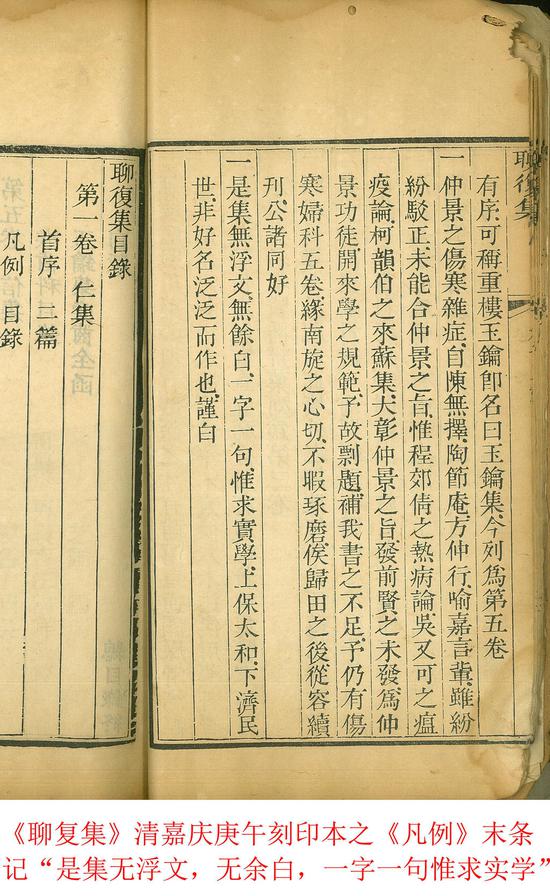 聊復集
有序、可稱重樓玉鑰、卽名曰玉鑰集、今列爲第五卷
一仲景之傷寒雜症、自陳無擇、陶節庵、方仲行、喻嘉言輩、雖紛
紛駁正、未能合仲景之旨、惟程郊倩之熱病論、吳又可之瘟
疫論、柯韻伯之來蘇集、大彰仲景之旨、發前賢之未發、爲仲
景功徒、開來學之規範、予故剽題、補我書之不足、予仍有傷
寒婦科五卷、緣南旋之心切、不暇琢磨、俟歸田之後、從容續
刊、公諸同好
一是集無浮文、無餘白、一字一句、惟求實學、上保太和、下濟民
世、非好名泛泛而作也、謹白
聊復集目錄
第一卷 仁集
首序 二篇
凡例 目錄
《聊复集》清嘉庆庚午刻印本之《凡例》末条
记“是集无浮文，无余白，一字一句惟求实学”